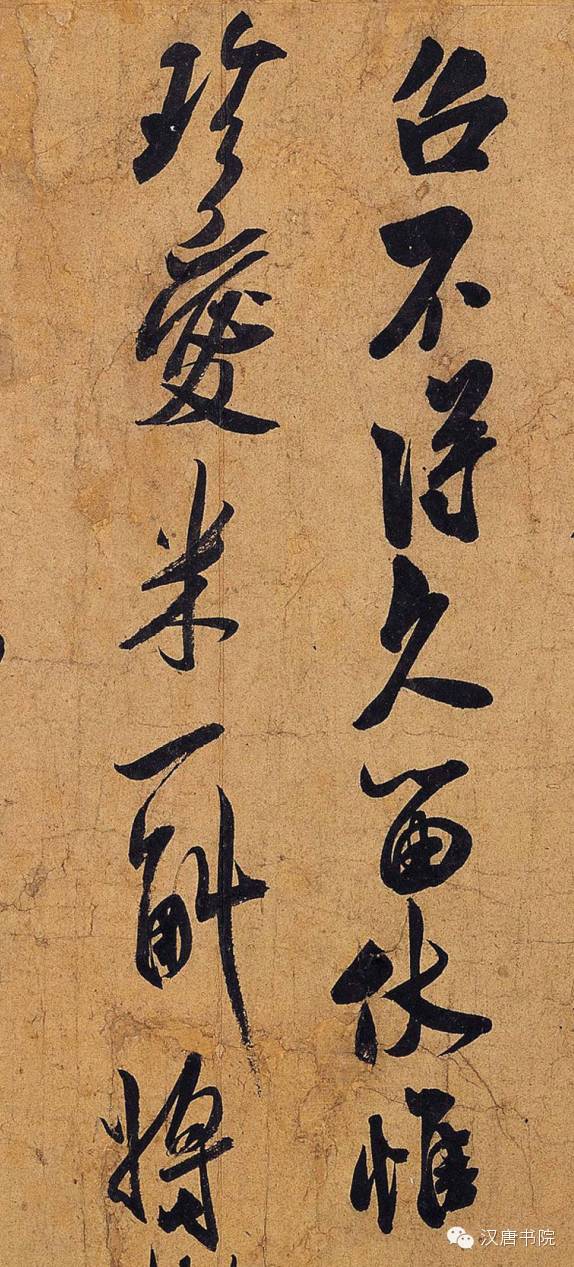 召不得久留伏惟
珍爱米一斛将
汉唐书院